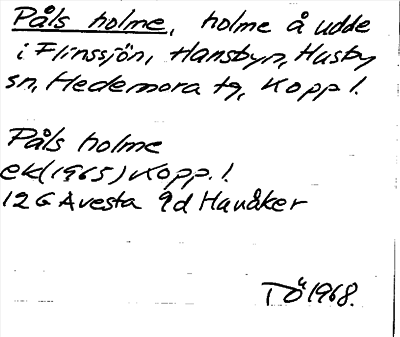 Påls holme, holme å udde
i Flinssjön, Hansbyn, Husby
sn, Hedemora tg, Kopp l.
Påls holme
ek (1965) Kopp. l.
12 G Avesta 9d Havåker
TÖ 1968.